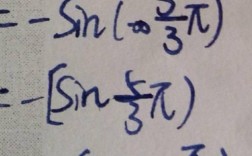 = -Sin(-∞ 5/3 π)
= -[Sin 5/3 π)